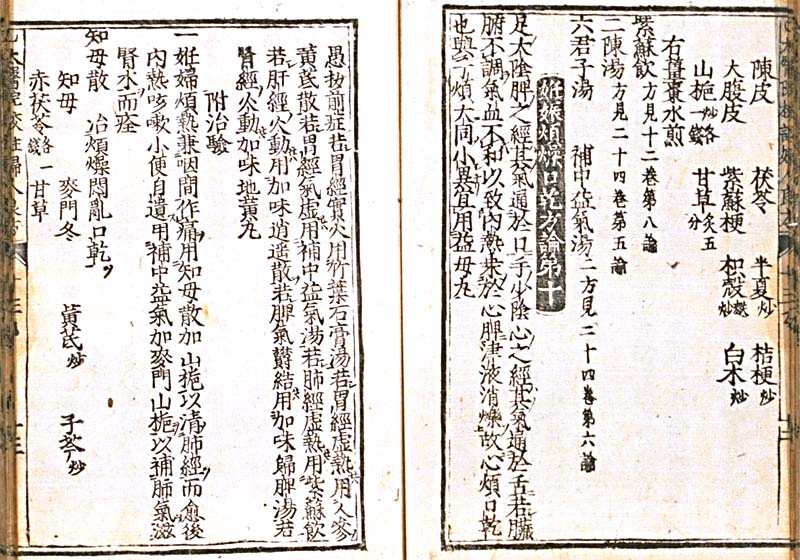 陳皮 茯苓 半夏炒 桔梗炒
大腹皮 紫蘇梗 枳殼麩炒 白朮炒
山梔炒各一錢 甘草炙五分
右薑棗水煎
紫蘇飲方見十二卷第八論
二陳湯方見二十四卷第五論
六君子湯 補中益氣湯二方見二十四卷第六論
妊娠煩燥口乾方論第十
足太陰脾之經其氣通於口手少陰心之經其氣通於舌若臟
腑不調氣血不和以致內熱乘於心脾津液消爍故心煩口乾
也與子煩大同小異宜用益母丸
愚按前症若胃經實火用竹葉石膏湯若胃經虛熱用人參
黃芪散若胃經氣虛用補中益氣湯若肺經虛熱用紫蘇飲
若肝經火動用加味逍遙散若脾氣鬱結用加味歸脾湯若
腎經火動加味地黃丸
附治驗
一妊婦煩熱兼咽間作痛用知母散加山梔以清肺經而愈後
內熱咳嗽小便自遺用補中益氣加麥門山梔以補肺氣滋
腎水而痊
知母散 治煩燥悶亂口乾
知母 麥門冬 黃芪炒 子芩炒
赤茯苓各一錢 甘草